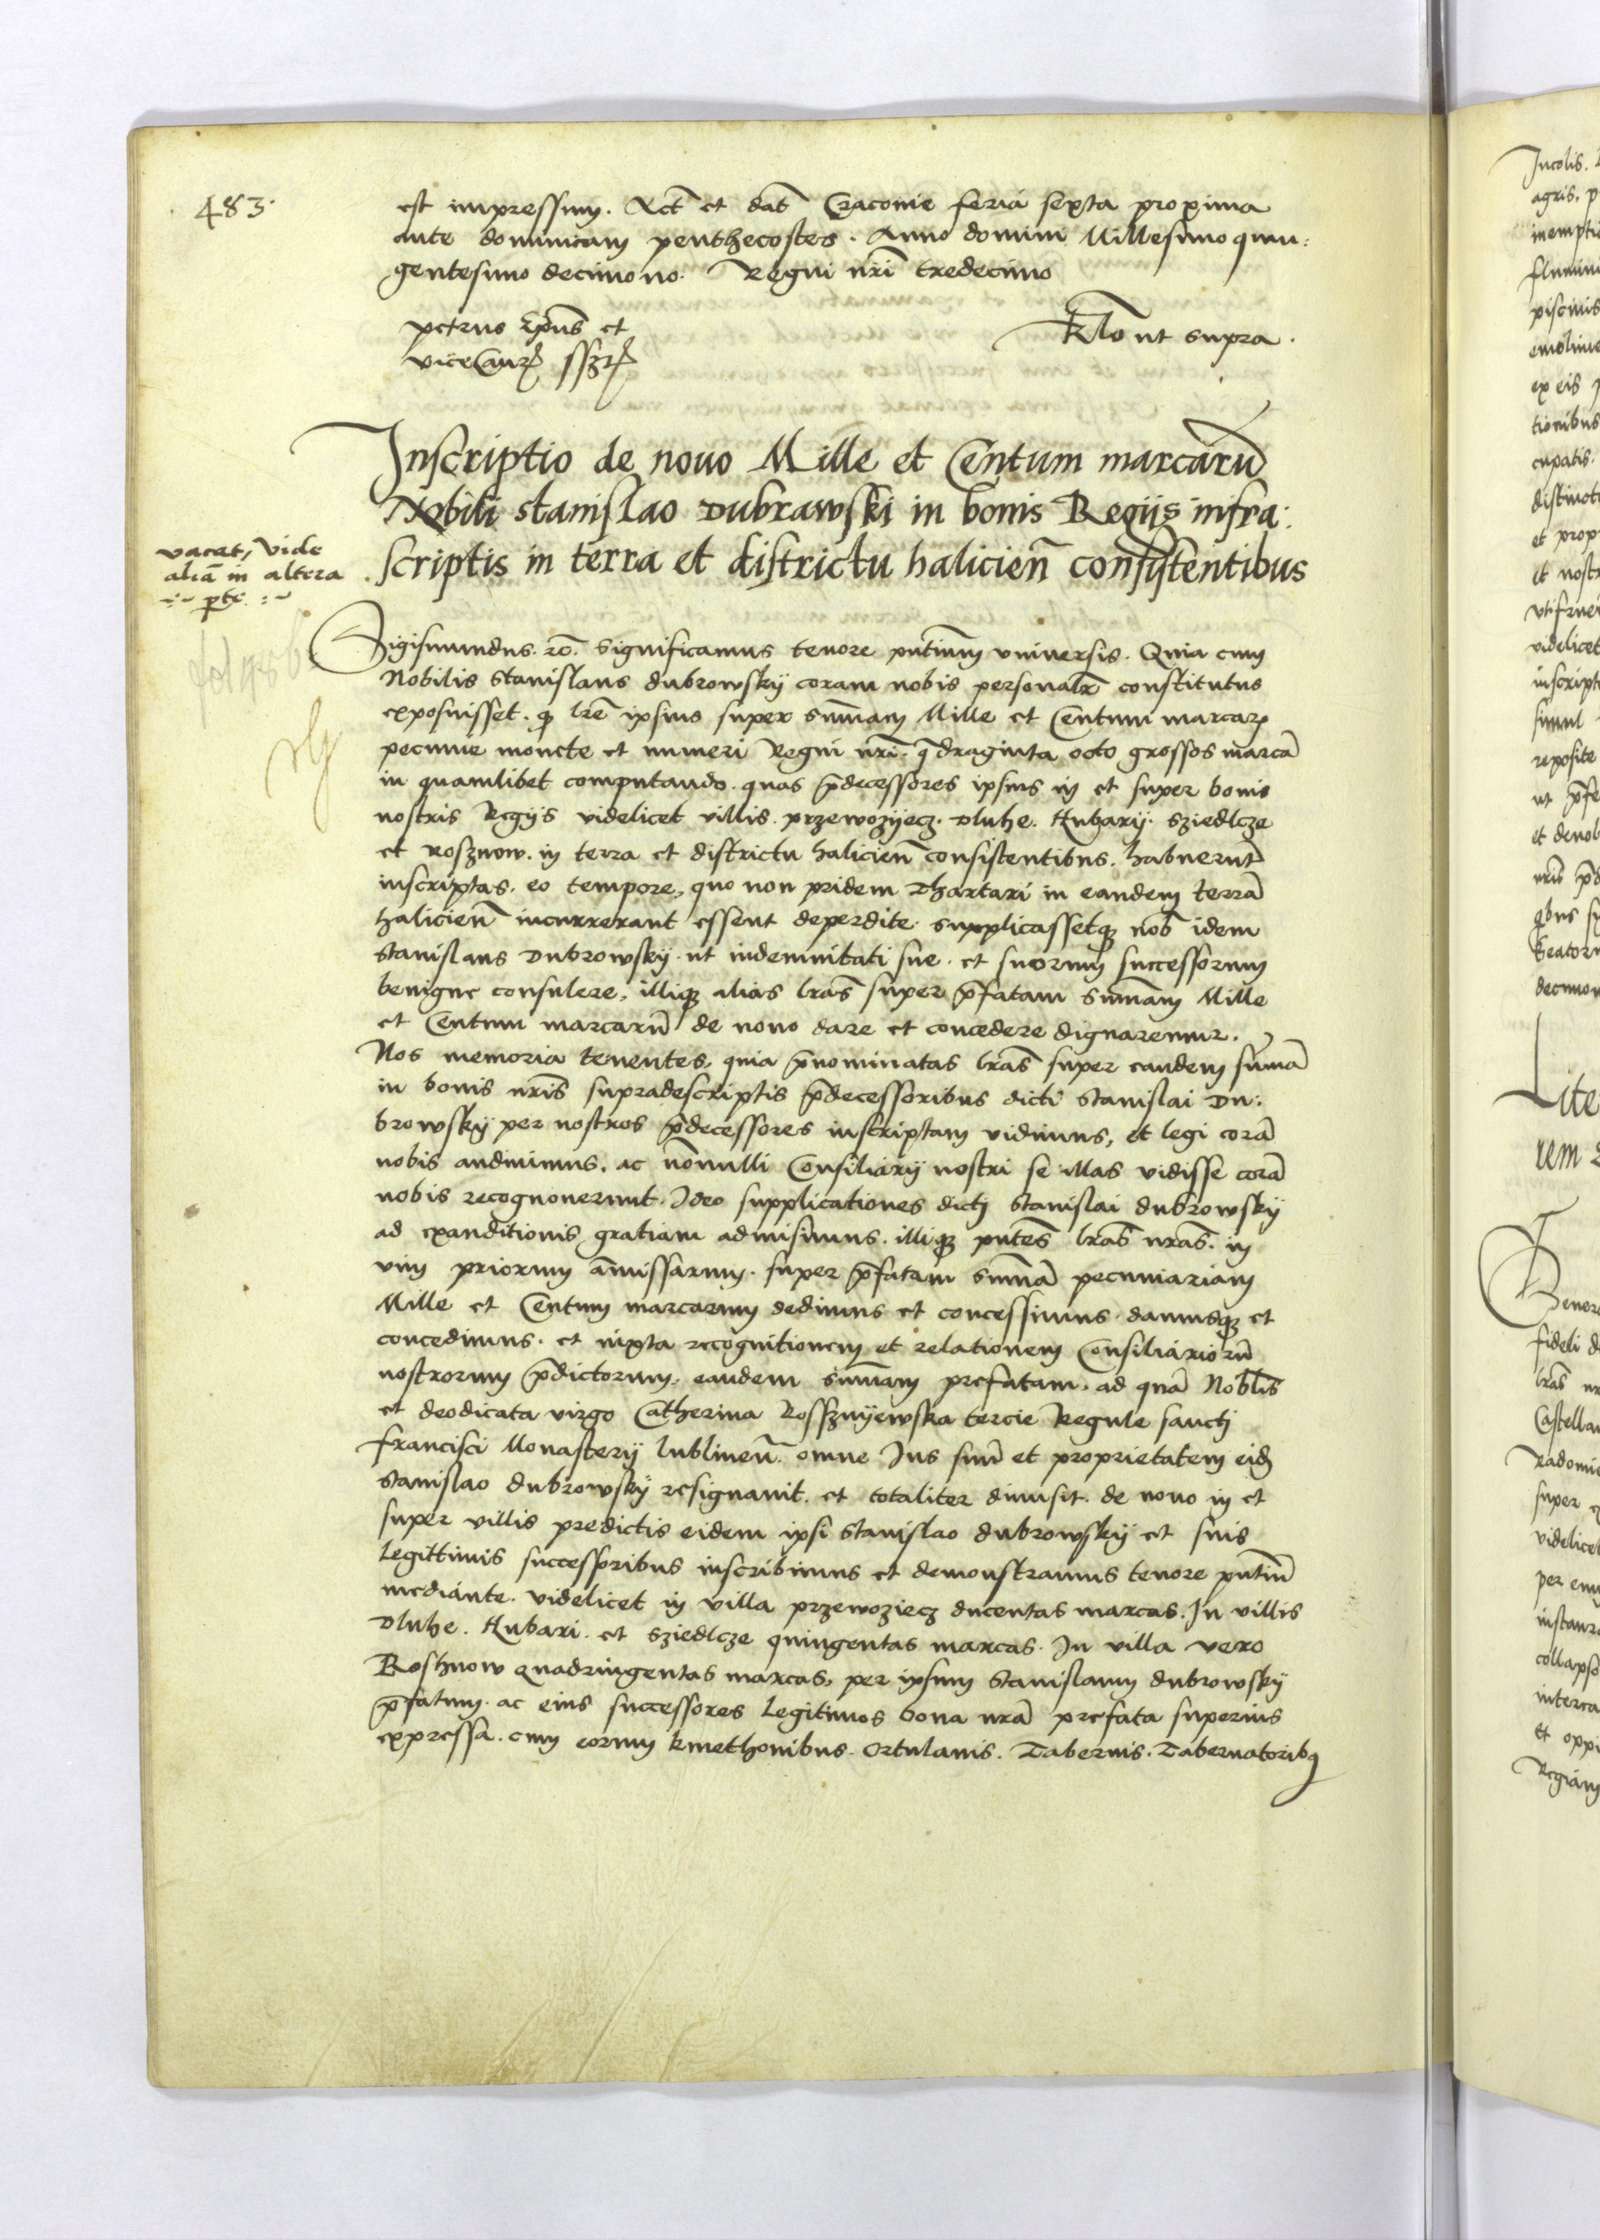 483.
est impressum. Act̃ et dat̃ Cracovie feria sexta proxima
ante dominicam penthecostes. Anno domini Millesimo quin:
gentesimo decimo no. Regni nr̃i tredecimo
petrus Ep̃us et
viceCan̄
Rl̃o ut supra.
Inscriptio de novo Mille et Centum marcarũ
Nobili stanislao Dubrawski in bonis Regijs infra:
scriptis in terra et districtu halicien̄ consistentibus
vacat, vide
aliã in altera
p̱te
Sigismundus. rc̃. Significamus tenore pñtium universis. Quia cum
Nobilis Stanislaus dubrowskÿ coram nobis personalr̃ constitutus
exposuisset. qꝫ lr̃e ipsius super sum̃am Mille et Centum marcarꝫ
pecunie monete et numeri Regni nr̃i. q̃draginta octo grossos marcã
in quamlibet computando. quas p̃decessores ipsius in et super bonis
nostris Regijs videlicet villis. przewozÿecz. Dluhe. Hubarÿ. Sziedlcze
et Rosznow. in terra et districtu halicien̄ consistentibus. habuerunt
inscriptas. eo tempore, quo non pridem Thartari in eandem terrã
halicien̄ incurrerant essent deperdite. supplicassetqꝫ nob̃ idem
Stanislaus Dubrowskÿ. ut indemnitati sue. et suorum successorum
benigne consulere, illiqꝫ alias lr̃as super p̃fatam sum̃am Mille
et Centum marcarũ de novo dare et concedere dignaremur.
Nos memoria tenentes, quia p̃nominatas lr̃as super eandem sum̃ã
in bonis nr̃is supradescriptis p̃decessoribus dicti Stanislai Du:
browskÿ per nostros p̃decessores inscriptam vidimus, et legi corã
nobis audivimus. ac nõnulli Consiliarÿ nostri se illas vidisse corã
nobis recognoverunt. Ideo supplicationes dicti Stanislai dubrowskÿ
ad exanditionis gratiam admisimus. illiqꝫ pñtes lr̃as nr̃as. in
vim priorum am̃issarum. super p̃fatam sum̃ã pecuniariam
Mille et Centum marcarum dedimus et concessimus. damusqꝫ et
concedimus. et iuxta recognitionem et relationem Consiliariorũ
nostrorum p̃dictorum. eandem sum̃am prefatam. ad quã Nobl̃is
et deodicata virgo Catherina Rossznÿewska tercie Regule sancti
francisci Monasterÿ lublinen̄. omne Ius suũ et proprietatem eid̃
Stanislao dubrowskÿ resignavit. et totaliter dimisit. de novo in et
super villis predictis eidem ipsi Stanislao dubrowskÿ et suis
legittimis successoribus inscribimus et demonstramus tenore pñtiũ
mediante. videlicet in villa przewoziecz ducentas marcas. In villis
Dluhe. Hubari. et Sziedlcze quingentas marcas. In villa vero
Roshnow quadringentas marcas, per ipsum Stanislaum dubrowskÿ
p̃fatum. ac eius successores legitimos bona nr̃a prefata superius
expressa. cum eorum kmethonibus. Ortulanis. Tabernis. Tabernatoribꝫ